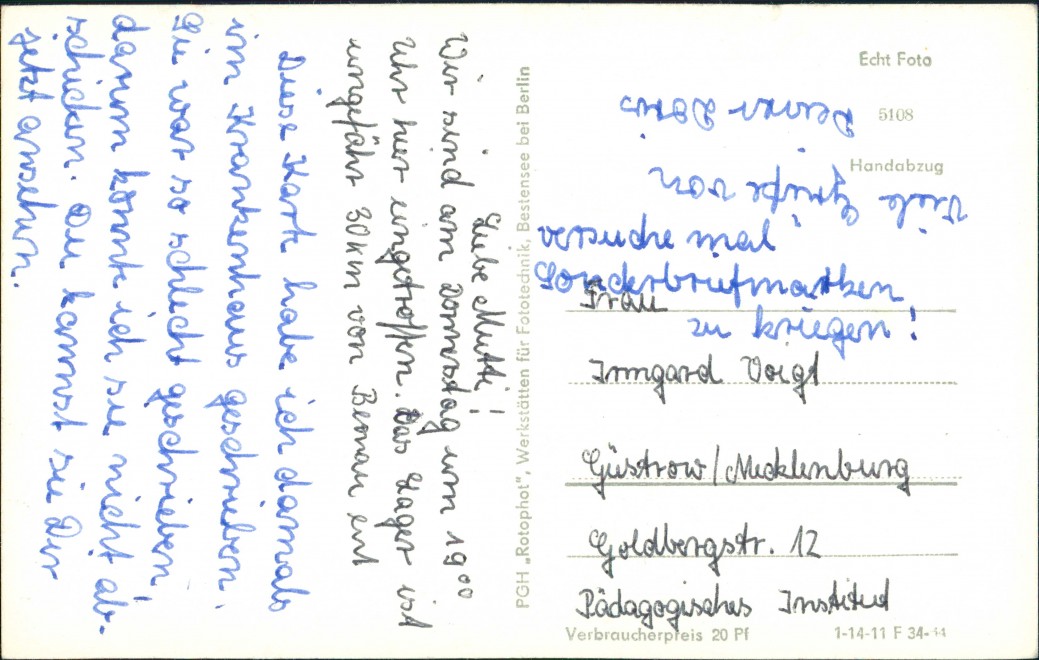 Liebe Mutti!
Wir sind am Donnerstag um 19⁰⁰
Uhr hier eingetroffen. Das Lager ist
ungefähr 30 km von Bernau ent
Diese Karte habe ich damals
im Krankenhaus geschrieben.
Sie war so schlecht geschrieben,
darum konnte ich sie nicht ab-
schicken. Du kannst sie Dir
jetzt ansehen.
PGH „Rotophot", Werkstätten für Fototechnik, Bestensee bei Berlin
Echt Foto
5108
Handabzug
Frau
Irmgard Voigt
Güstrow/Mecklenburg
Goldbergstr. 12
Pädagogisches Institut
Verbraucherpreis 20 Pf
1-14-11 F 34-
zu kriegen!
Sonderbriefmarken
versuche mal
Viele Grüße von
Deiner Doris